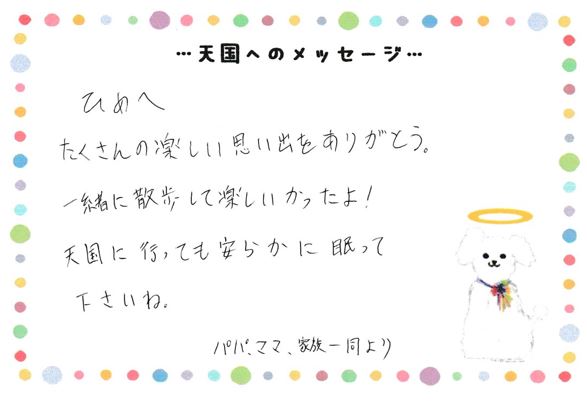 …天国へのメッセージ…
ひめへ
たくさんの楽しい思い出をありがとう。
一緒に散歩して楽しいかったよ!
天国に行っても安らかに眠って
下さいね。
パパ、ママ、家族一同より